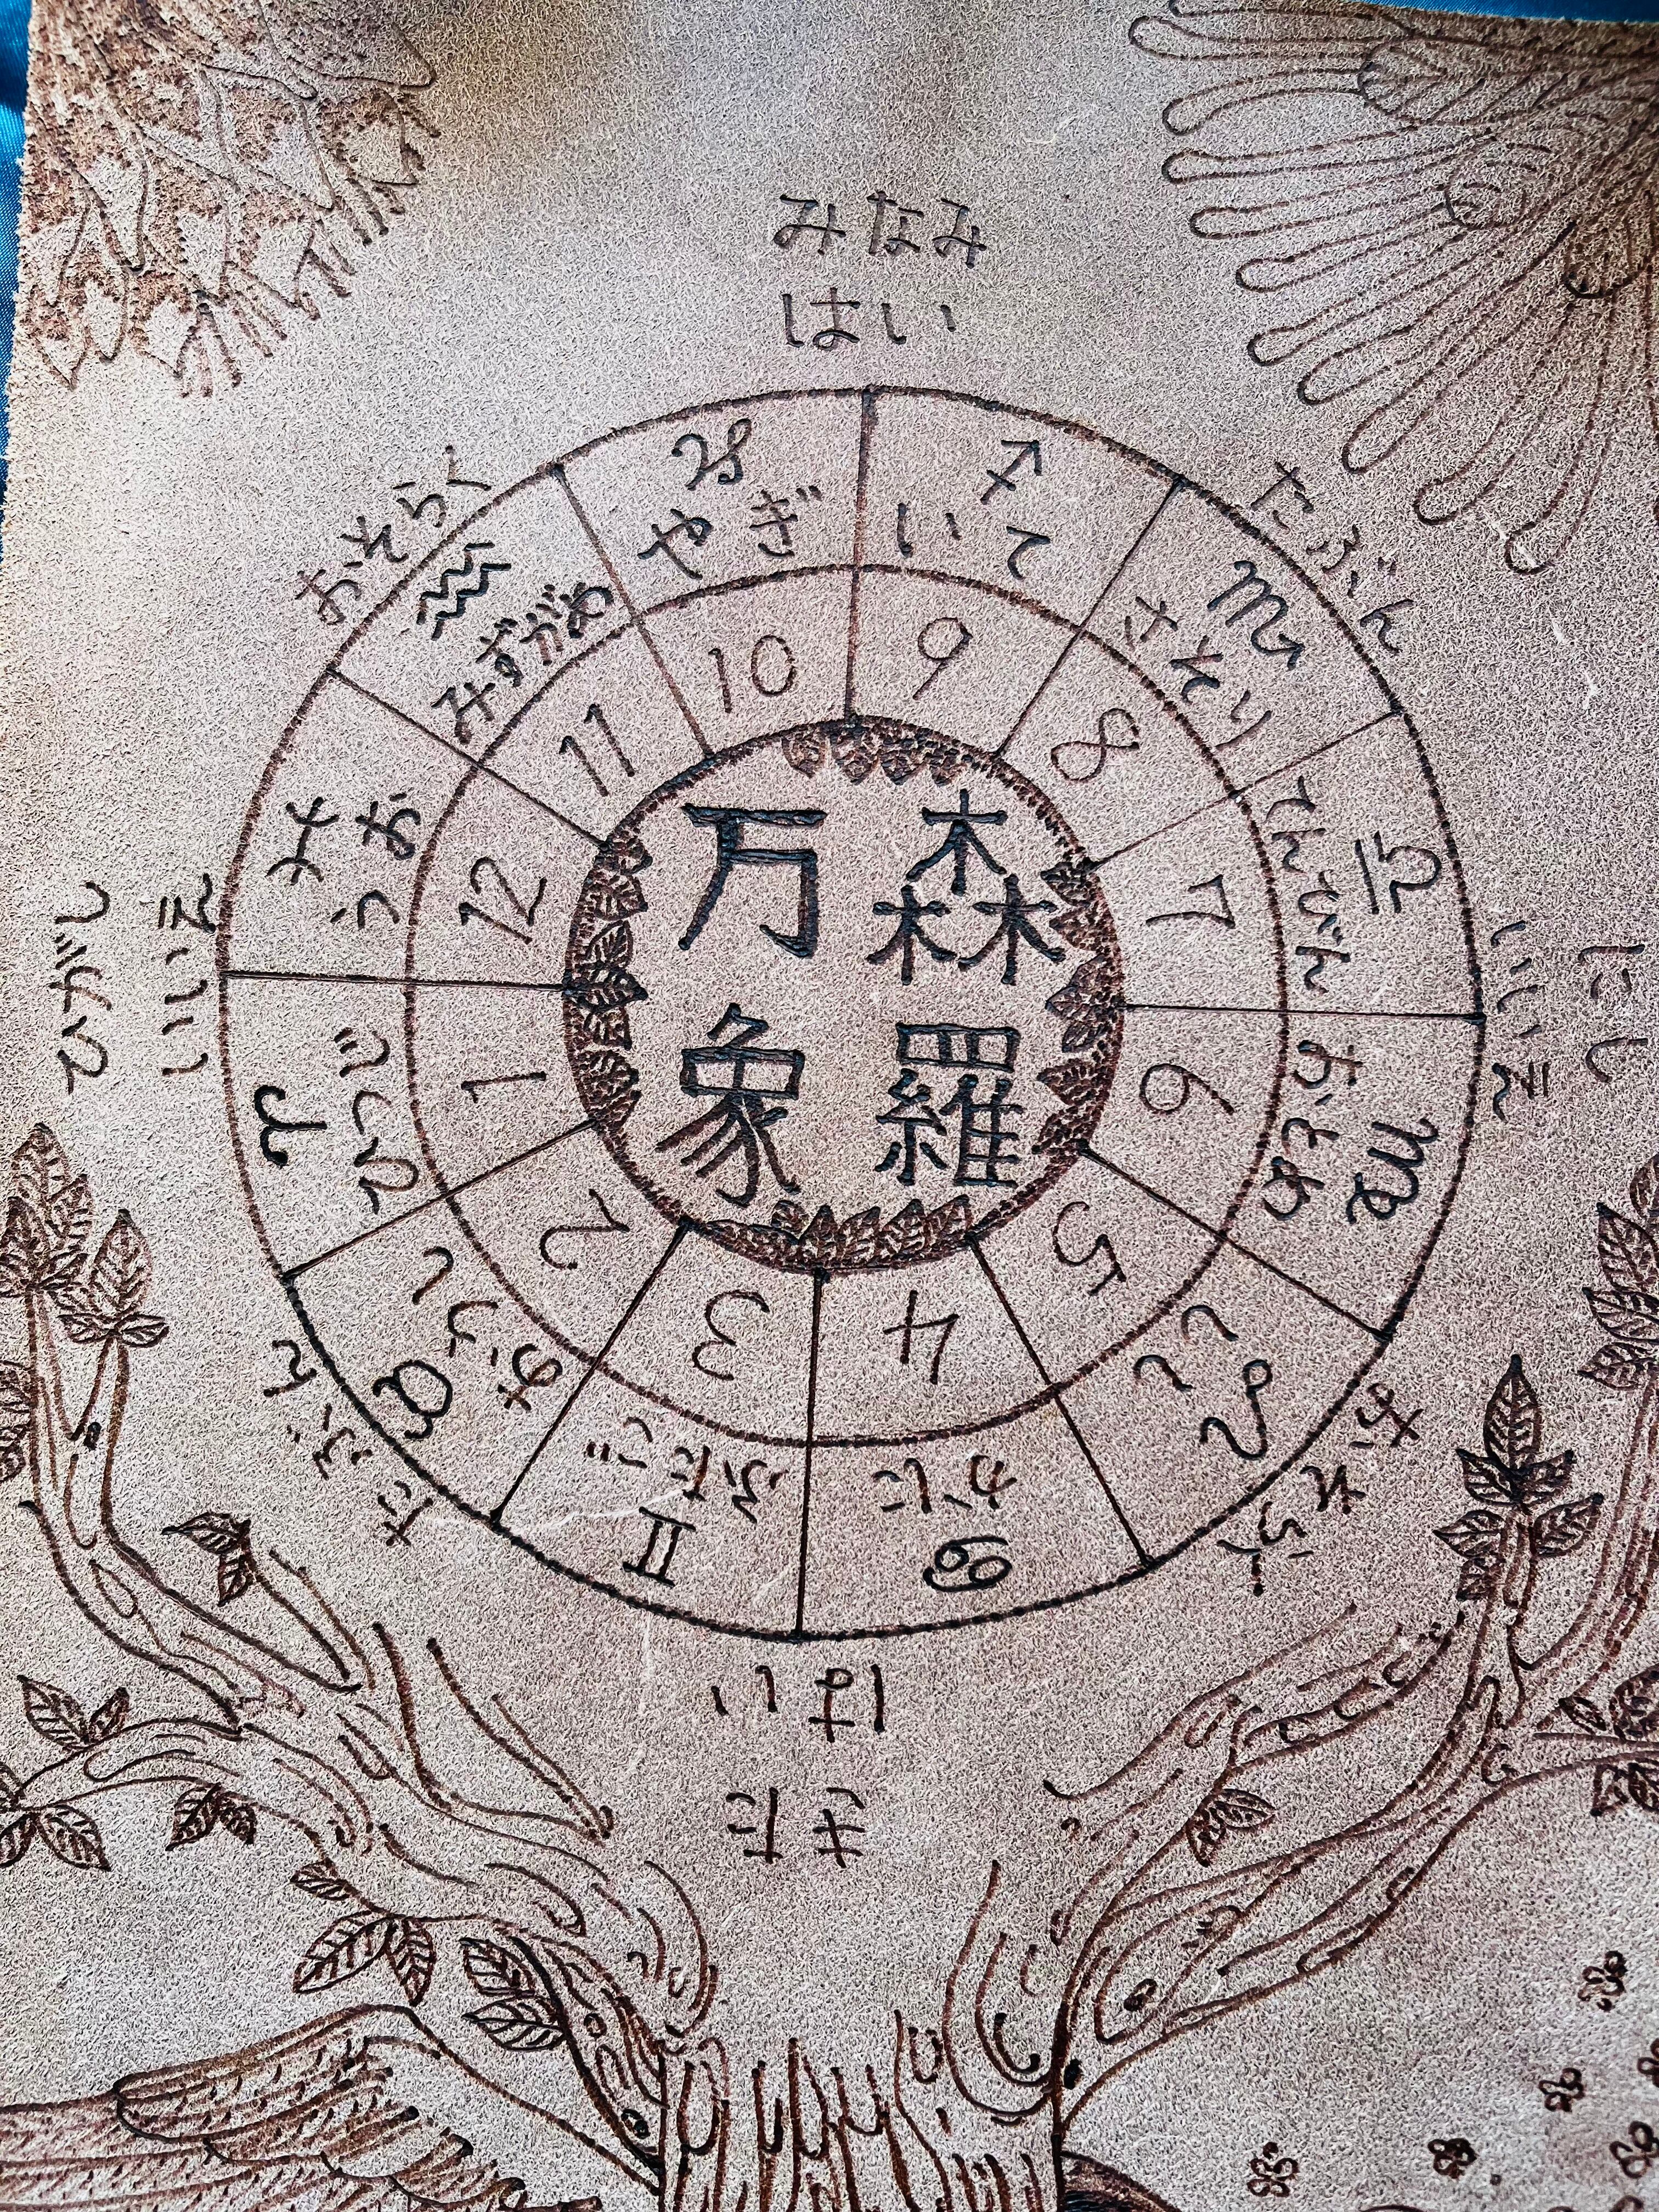 みなみ
はい
たぶん
にし
いいえ
おそらく
きた
はい
たぶん
ひがし
いいえ
おそらく
♈ ひつじ
♉ おうし
♊ ふたご
♋ かに
♌ しし
♍ おとめ
♎ てんびん
♏ さそり
♐ いて
♑ やぎ
♒ みずがめ
♓ うお
1
2
3
4
5
6
7
8
9
10
11
12
森羅
万象